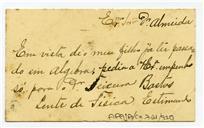 Exmo Snr Dr Almeida
Em vista de o meu filho já ter passa-
do em Algebra, pedia a V. Exa empenho
para o Dr Teixeira Bastos
Lente de Fisica